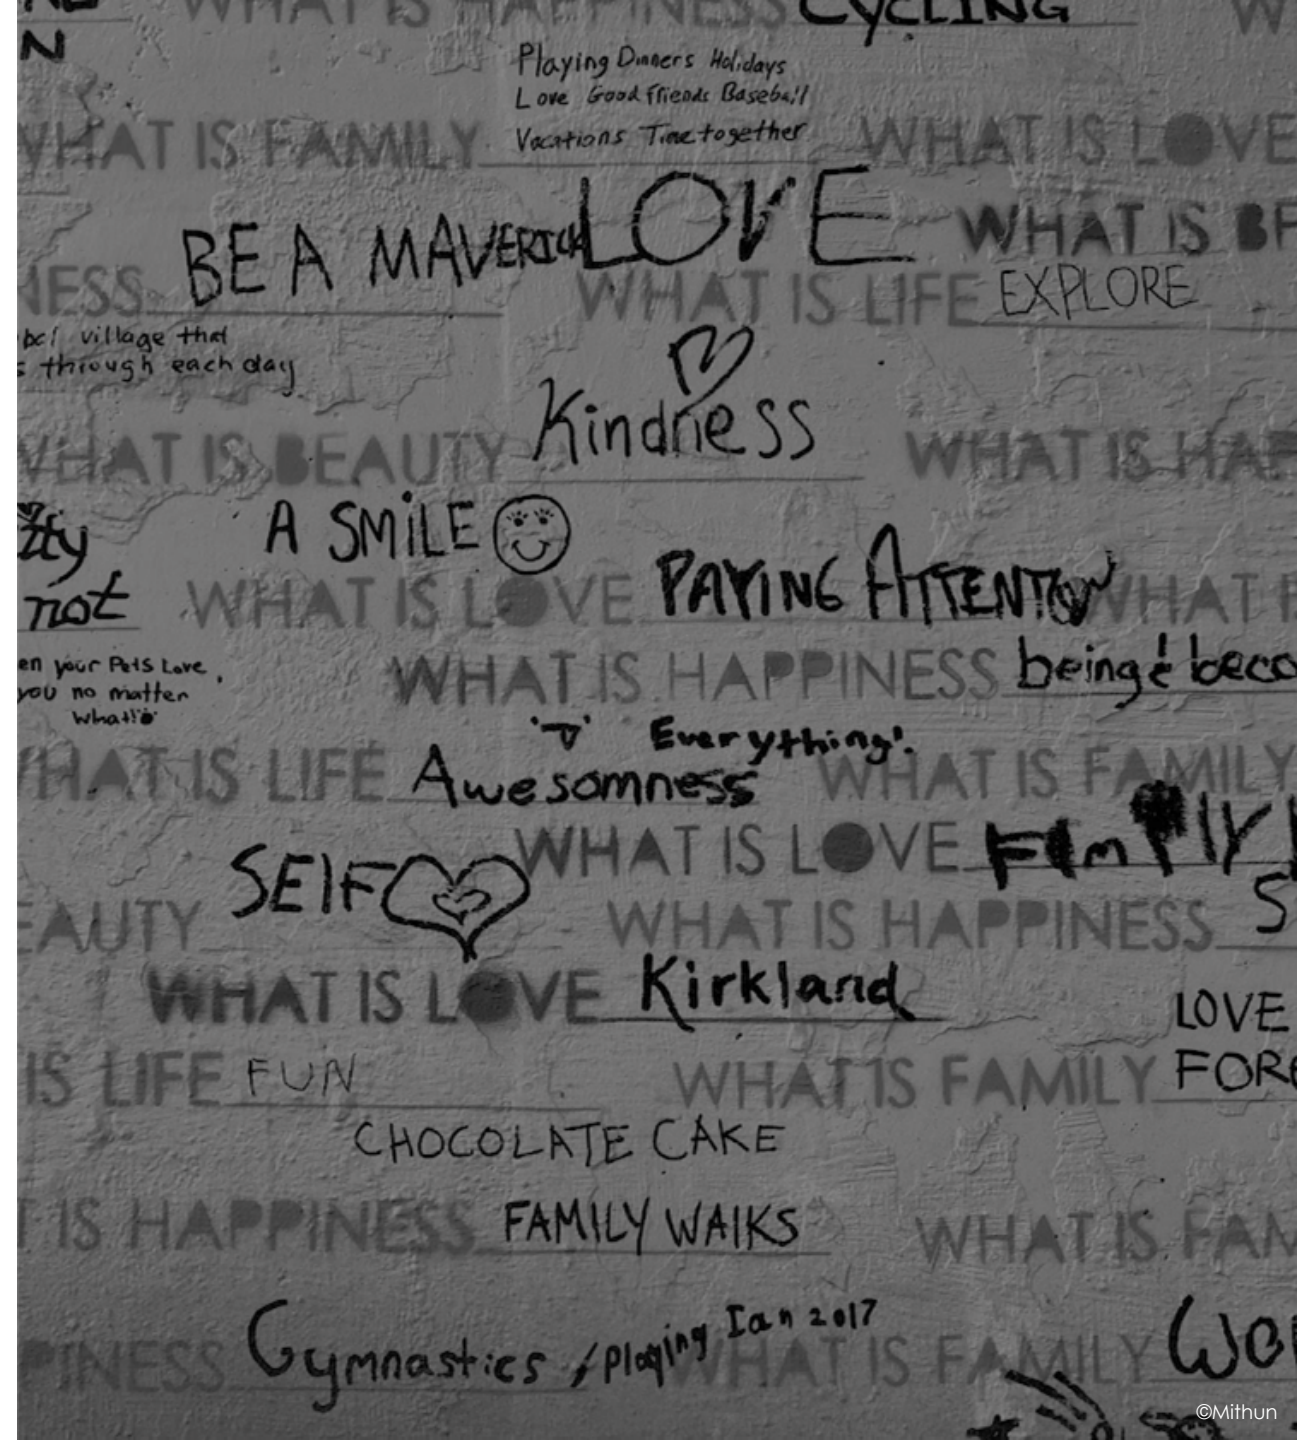 WHAT IS HAPPINESS CYCLING
N
Playing Dinners Holidays
Love Good friends Baseball
Vacations Time together
WHAT IS FAMILY
WHAT IS LOVE
BE A MAVERICK
LOVE
WHAT IS
WHAT IS LIFE EXPLORE
village that
through each day
Kindness
WHAT IS BEAUTY
WHAT IS HAP
A SMiLE
not
WHAT IS LOVE PAYING ATTENTION
WHAT IS
en your Pets Love,
you no matter
what!
WHAT IS HAPPINESS being & beco
Everything!
WHAT IS LIFE Awesomness
WHAT IS FAMILY
WHAT IS LOVE
SElF
EAUTY
WHAT IS HAPPINESS S
WHAT IS LOVE Kirkland
LOVE
IS LIFE FUN
WHAT IS FAMILY FORE
CHOCOLATE CAKE
IS HAPPINESS FAMILY WAlKS
WHAT IS FAM
Gymnastics / playing Ian 2017
PINESS
WHAT IS FAMILY Wo
©Mithun